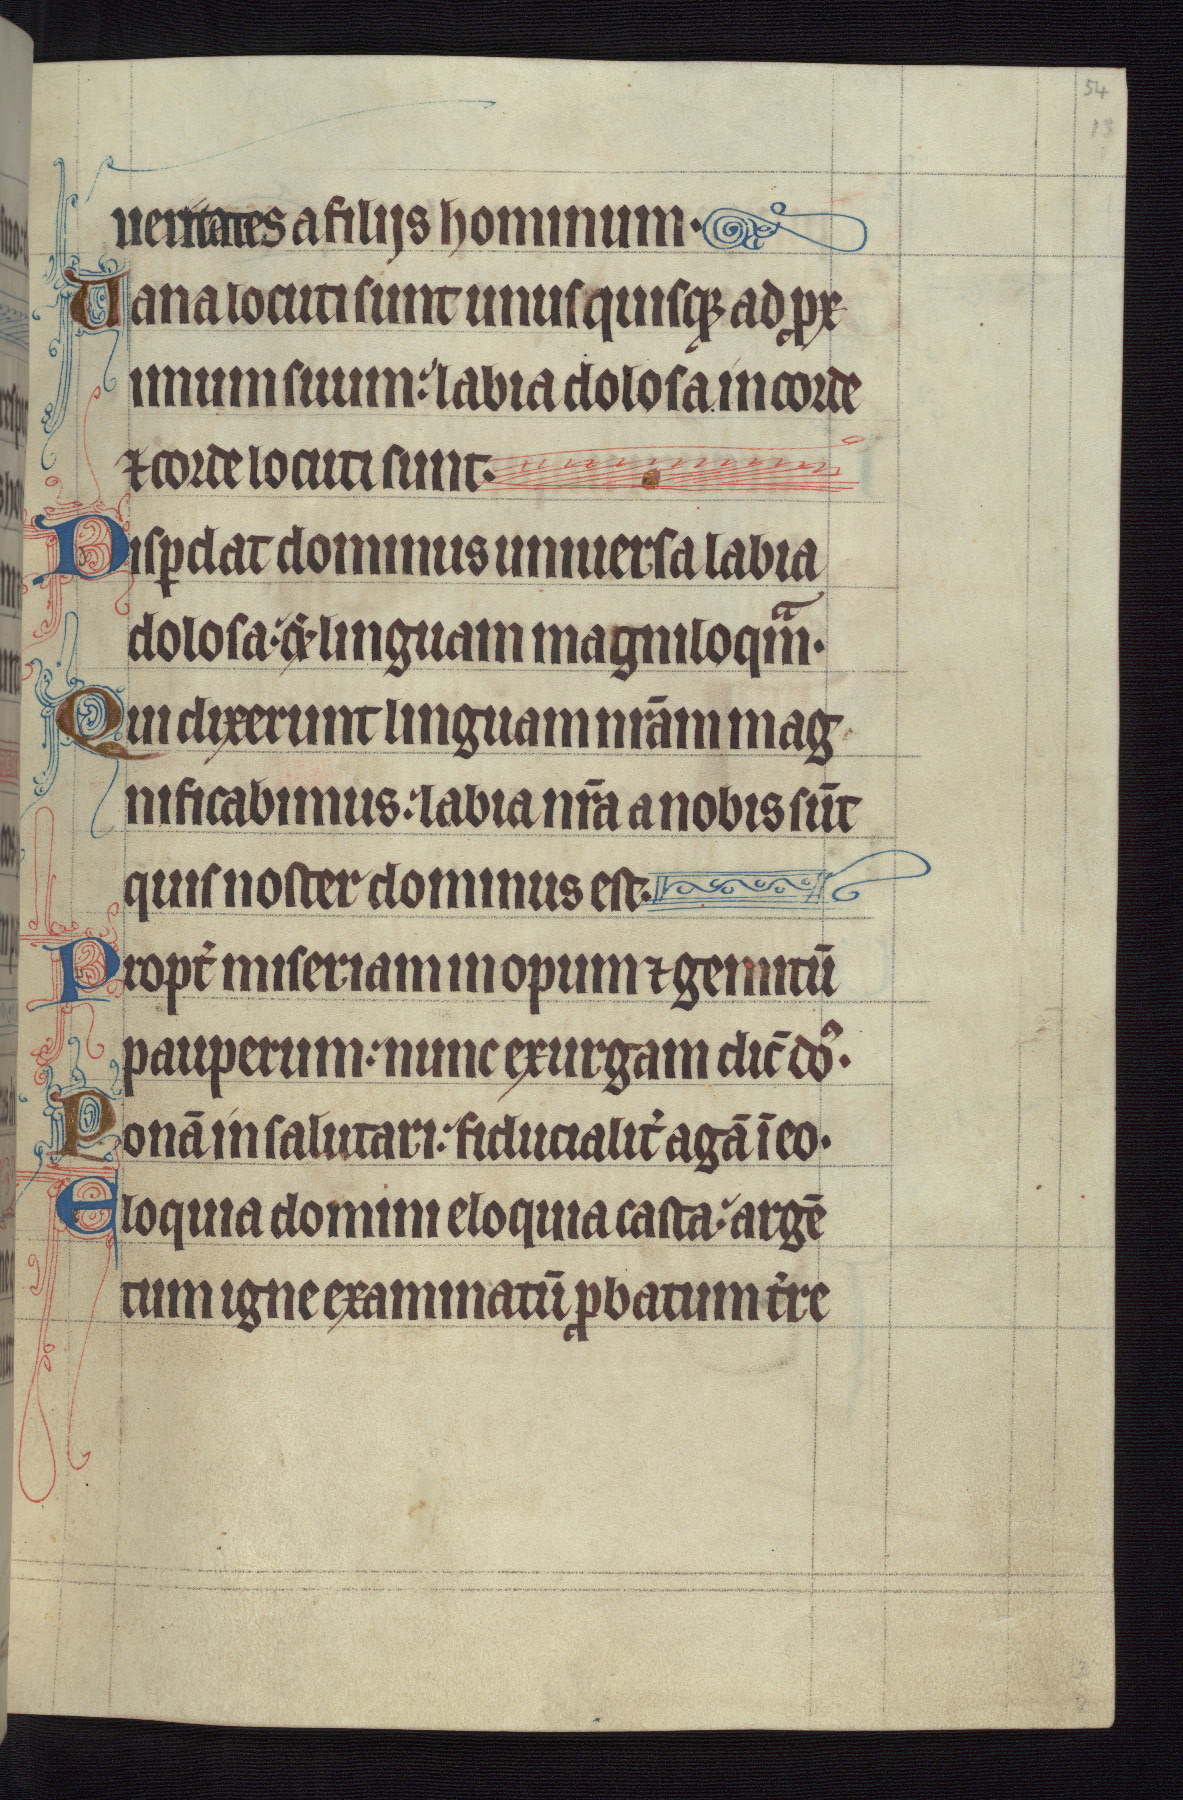 54
13
ueritates a filijs hominum·
Uana locuti sunt unusquisqꝫ ad ꝓx
imum suum: labia dolosa in corde
⁊ corde locuti sunt·
Disꝑdat dominus uniuersa labia
dolosa: & linguam magniloqᵃm·
Qui dixerunt linguam nr̄am mag
nificabimus: labia nr̄a a nobis sūt
quis noster dominus est·
Propt̾ miseriam inopum ⁊ gemitū
pauperum: nunc exurgam dic̄ dn̄s·
Ponā in salutari: fiducialit̾ agā ī eo·
Eloquia domini eloquia casta: argē
tum igne examinatū ꝓbatum t̾re